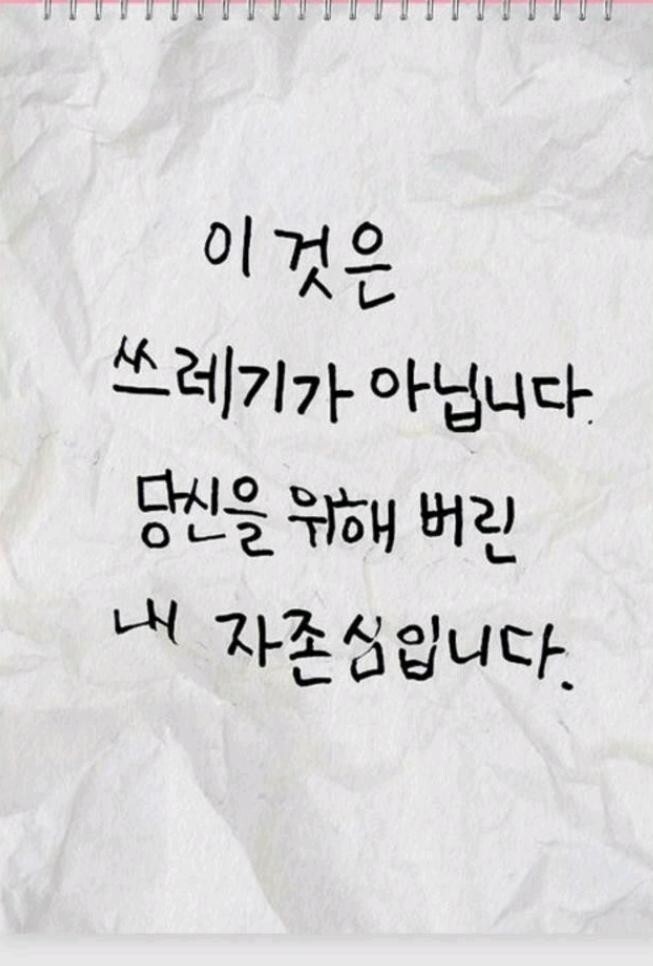 이것은
쓰레기가 아닙니다.
당신을 위해 버린
내 자존심입니다.